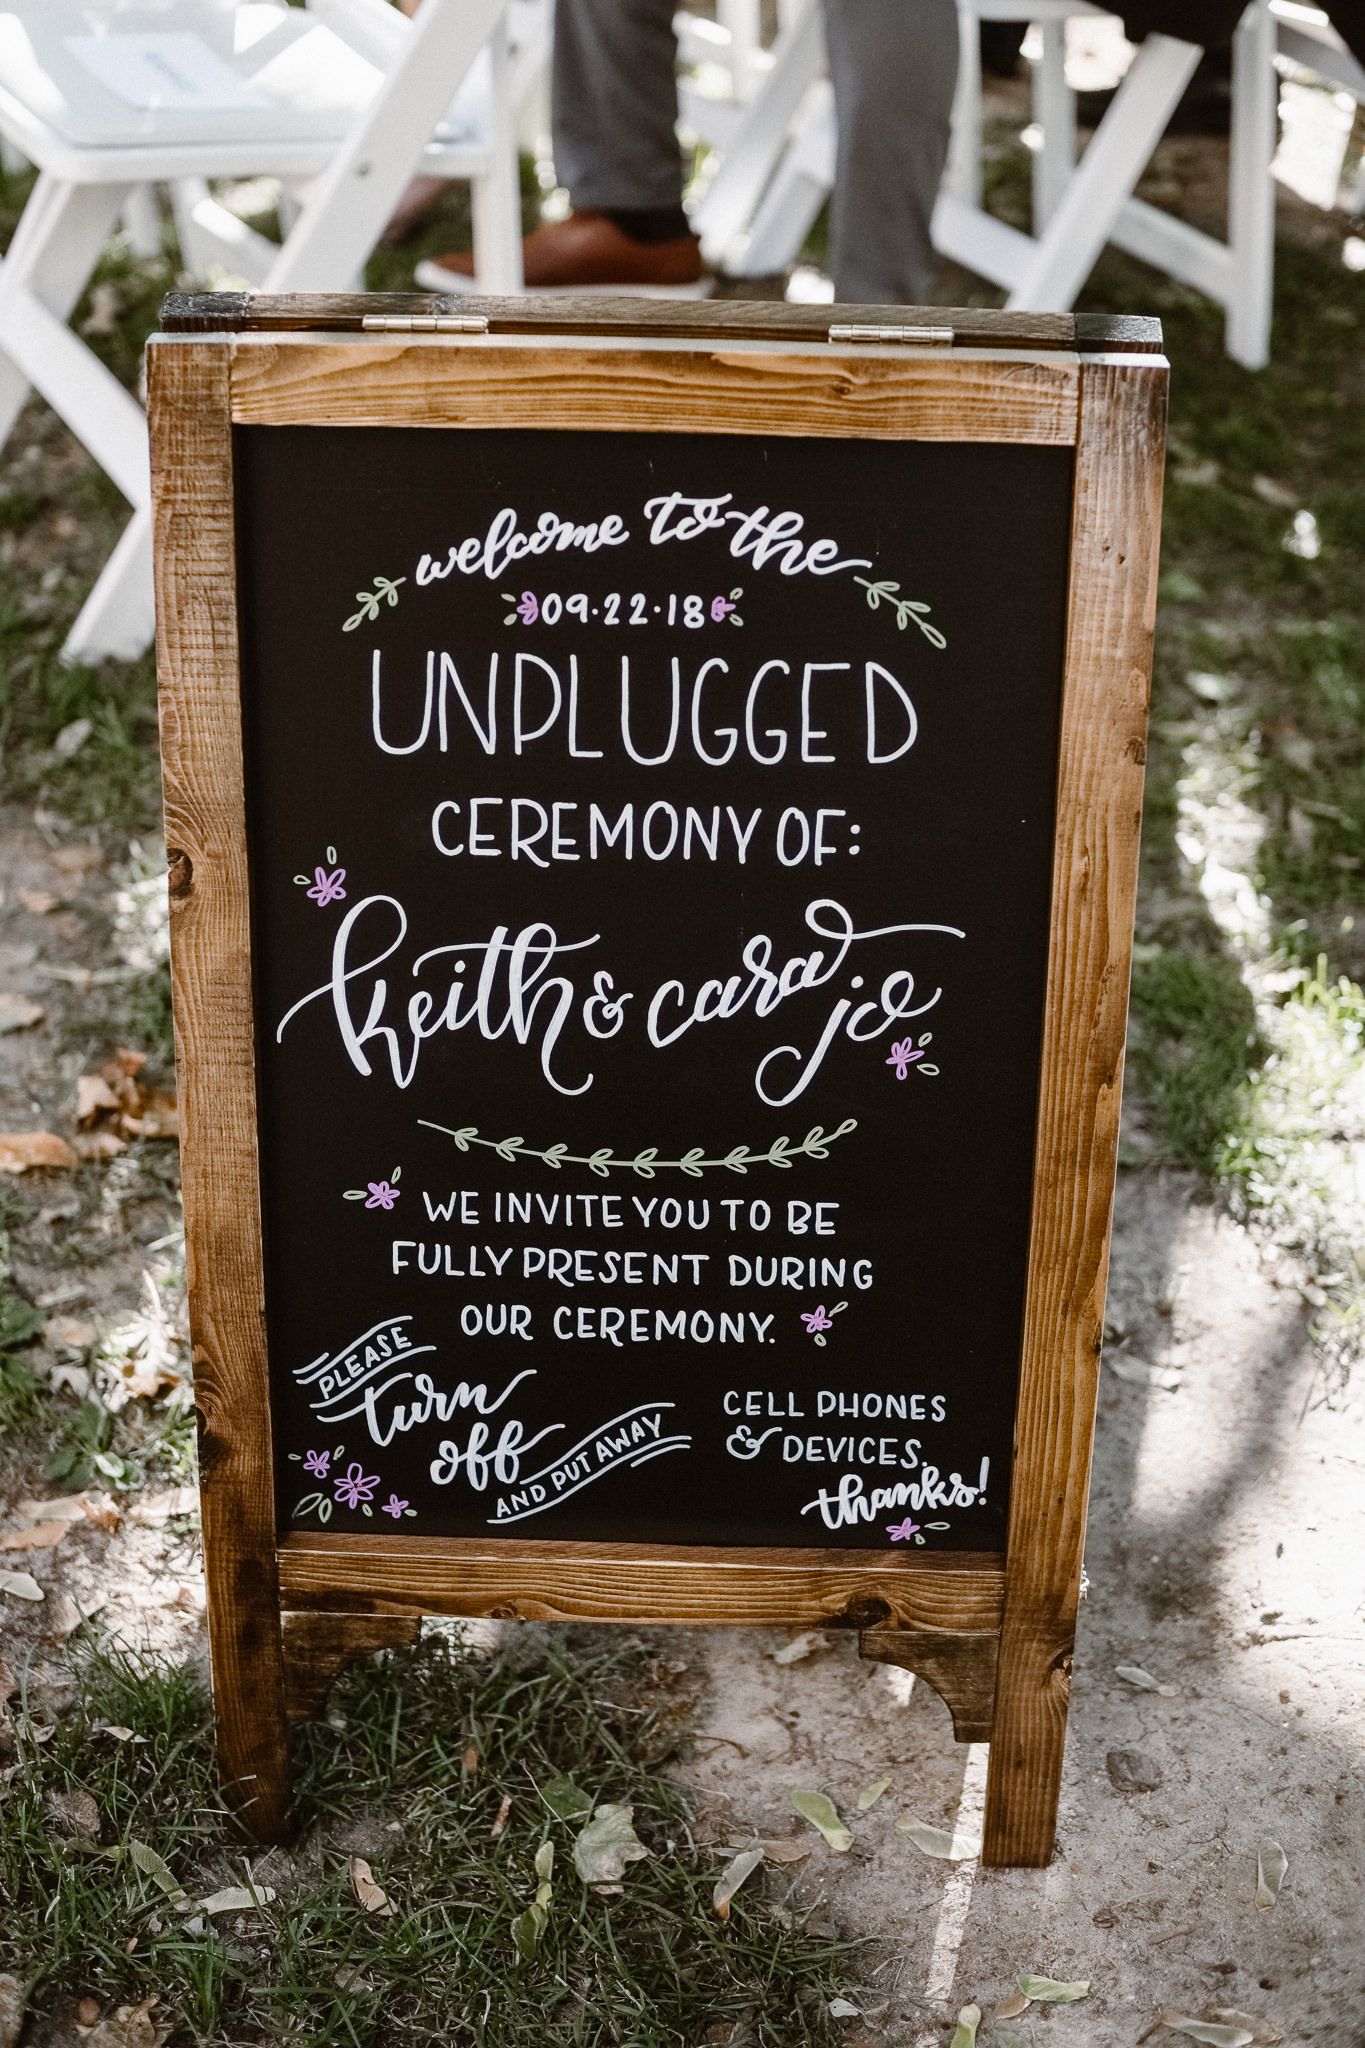 welcome to the
09·22·18
UNPLUGGED
CEREMONY OF:
keith & cara jo
WE INVITE YOU TO BE
FULLY PRESENT DURING
OUR CEREMONY.
PLEASE
turn
off
AND PUT AWAY
CELL PHONES
& DEVICES.
thanks!